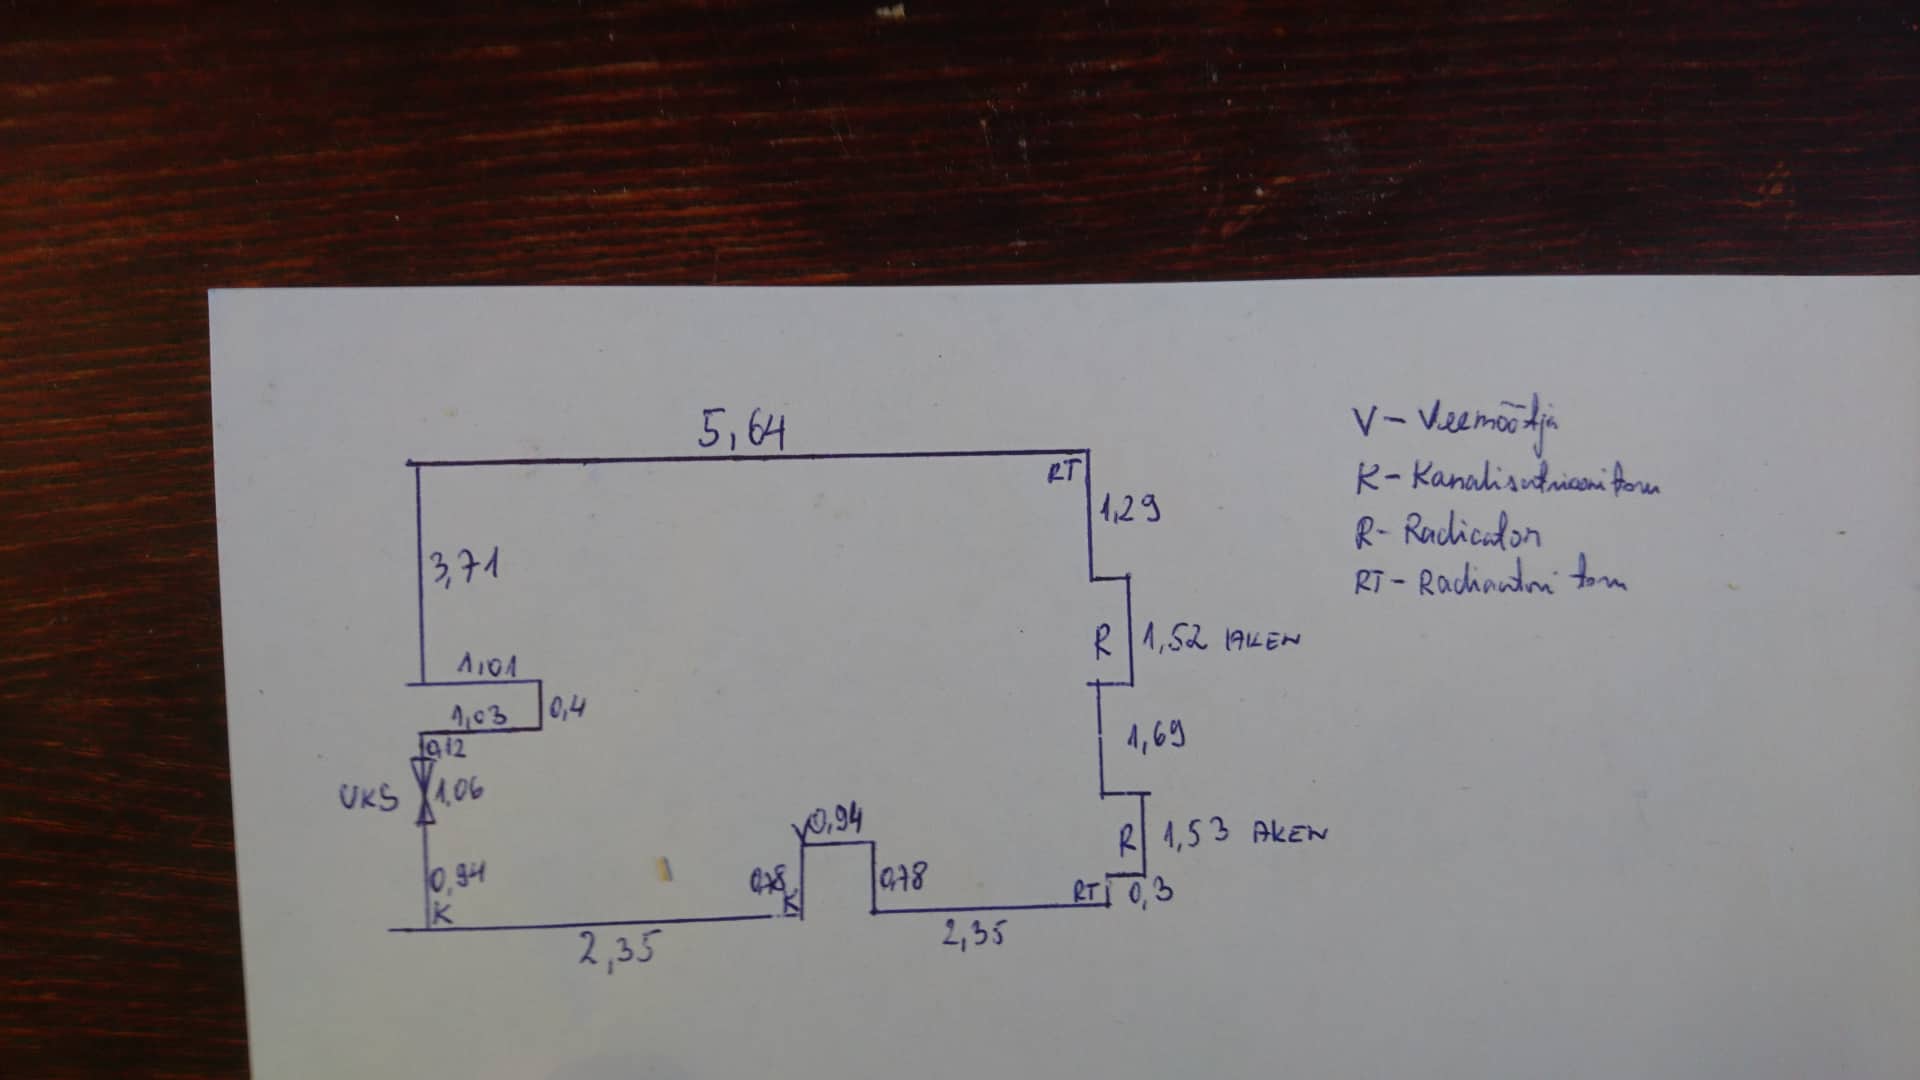 5,64
RT
1,29
3,71
1,01
0,4
1,03
0,12
UKS
1,06
0,94
K
2,35
0,78
K
V
0,94
0,78
2,35
RT
0,3
R
1,53 AKEN
1,69
R
1,52 AKEN
V - Veemõõtja
K - Kanalisatsiooni toru
R - Radiaator
RT - Radiaatori toru